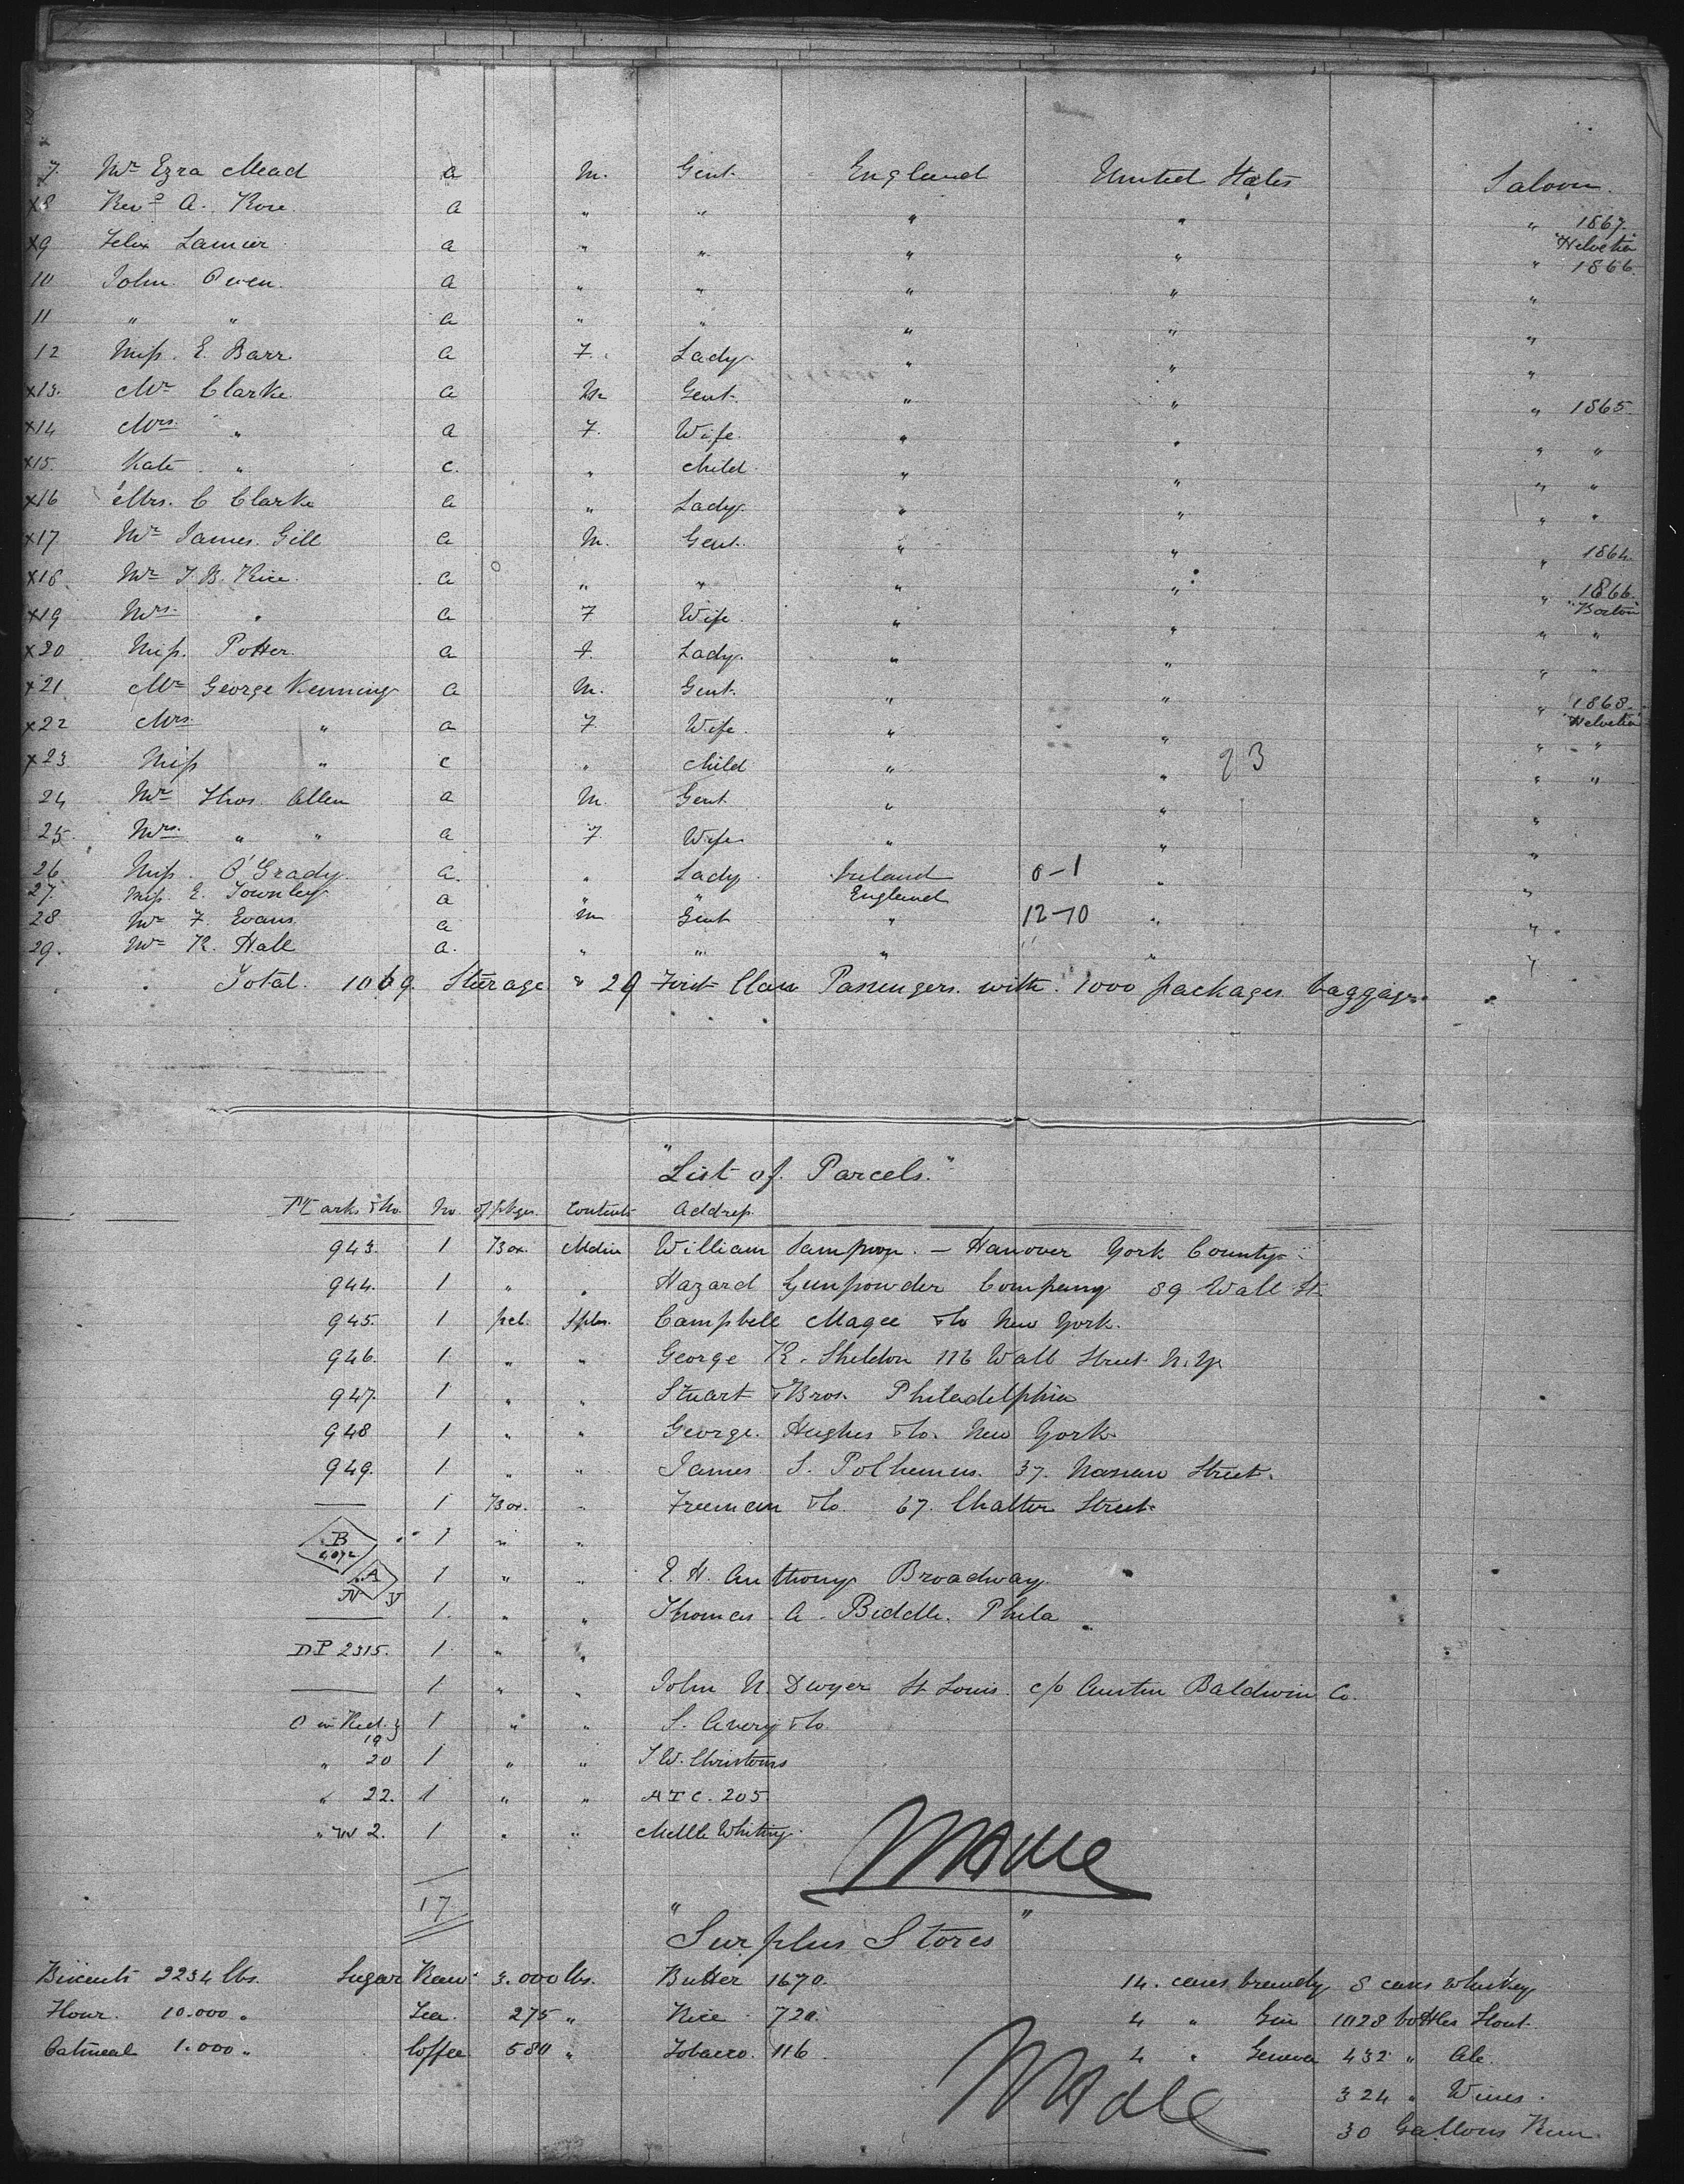 7. Mr Ezra Mead a M. Gent. England United States Saloon.
x8 Revd A. Rose. a " " " " " 1867.
x9 Felix Lamier a " " " " " "Helvetia" 1866.
10 John Owen. a " " " " "
11 " " a " " " " "
12 Miss. E. Barr. a F. Lady " " "
x13. Mr Clarke a M Gent. " " " 1865.
x14 Mrs. " a F. Wife. " " " "
x15. Kate " c. " child. " " " "
x16 Mrs. C Clarke a " Lady " " " "
x17 Mr James. Gill a M. Gent. " " " 1864.
x18 Mr J. B. Rice. a " " " " " 1866. "Boston"
x19 Mrs. " a F Wife " " " "
x20 Miss. Potter. a F. Lady. " " " "
x21 Mr George Kenning a M. Gent. " " " 1868. "Helvetia"
x22 Mrs. " a F Wife. " " " "
x23 Miss " c " child " " 23 " "
24 Mr Thos. Allen a M. Gent " " "
25. Mrs. " " a F. Wife " " "
26. Miss. O'Grady. a. " Lady Ireland 0-1 " "
27. Miss. E. Townley a " " England "
28 Mr F Evans. a M Gent " 12-10 " "
29. Mr R. Hall a. " " " " "
Total. 1069. Steerage " 29 First Class Passengers. with. 1000 packages baggage.
"List of Parcels."
Marks & No. No. of pkges. Contents Address
943. 1 Box. Mdise William Sampson. - Hanover York County
944. 1 " " Hazard Gunpowder Company 89 Wall St.
945. 1 pcl. Spls. Campbell Magee & Co New York.
946. 1. " " George R. Sheldon 116 Wall Street N.Y.
947. 1 " " Stuart & Bros. Philadelphia
948 1 " " George. Hughes & Co. New York
949. 1 " " James S. Polhemus. 37. Nassau Street.
— 1 Box. " Freeman & Co. 67. Chatter Street
B 1 " "
A N Y 1 " " E. H. Anthony Broadway.
— 1. " " Thomas A. Biddle. Phila
D.P 2315. 1. " "
— 1 " " John N. Dwyer St Louis. c/o Austin Baldwin Co.
O in Red. 19 1 " " S. Avery & Co.
" 20 1 " "
" 22. 1 " " A T C. 205
" W 2. 1 " " Whiting.
17
"Surplus Stores"
Biscuits 2234 lbs. Sugar Raw 3.000 lbs. Butter 1670. 14. cases brandy 8 cases whiskey
Flour. 10.000 " Tea. 275 " Rice 720. 4 " Gin 1028 bottles Stout.
Oatmeal 1.000 " Coffee 580 " Tobacco. 116. 4 " Geneva 432 " Ale.
324 " Wines.
30 Gallons Rum.